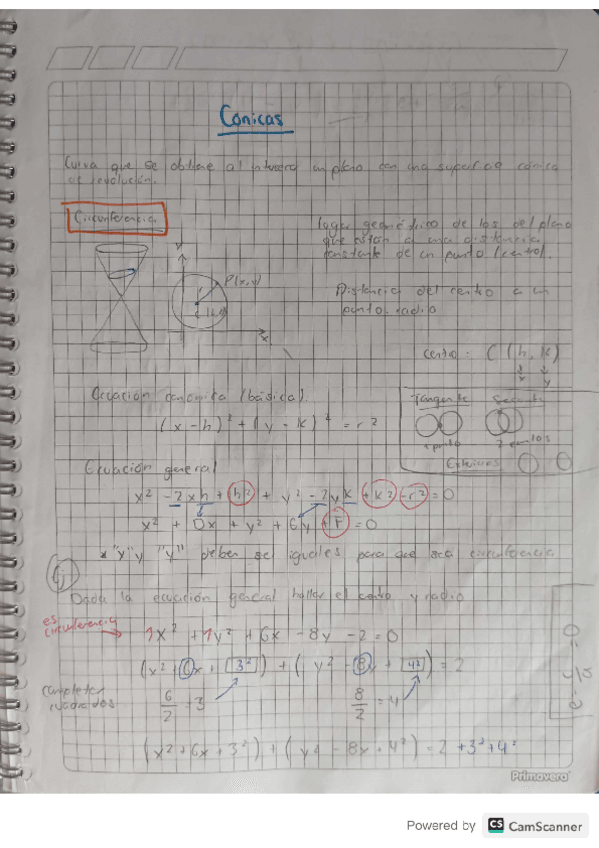 Cónicas
Curva que se obtiene al intersecar un plano con una superficie cónica
de revolución.
Circunferencia
lugar geométrico de los del plano
que están a una distancia
constante de un punto (centro).
P(x,y)
r
y
x
Distancia del centro a un
punto: radio
Centro: C (h, k)
x y
Ecuación canónica (básica)
(x - h)² + (y - k)² = r²
Tangente Secante
1 punto 2 puntos
Ecuación general
x² - 2xh + h² + y² - 2yk + k² - r² = 0
x² + Dx + y² + Ey + F = 0
* "x" y "y" deben ser iguales para que sea circunferencia
Ej
Dada la ecuación general hallar el centro y radio
es
circunferencia
1x² + 1y² + 6x - 8y - 2 = 0
(x² + 6x + 3²) + (y² - 8y + 4²) = 2
completar
cuadrados
6/2 = 3 8/2 = 4
(x² + 6x + 3²) + (y² - 8x + 4²) = 2 + 3² + 4²
Primavera
Powered by CS CamScanner